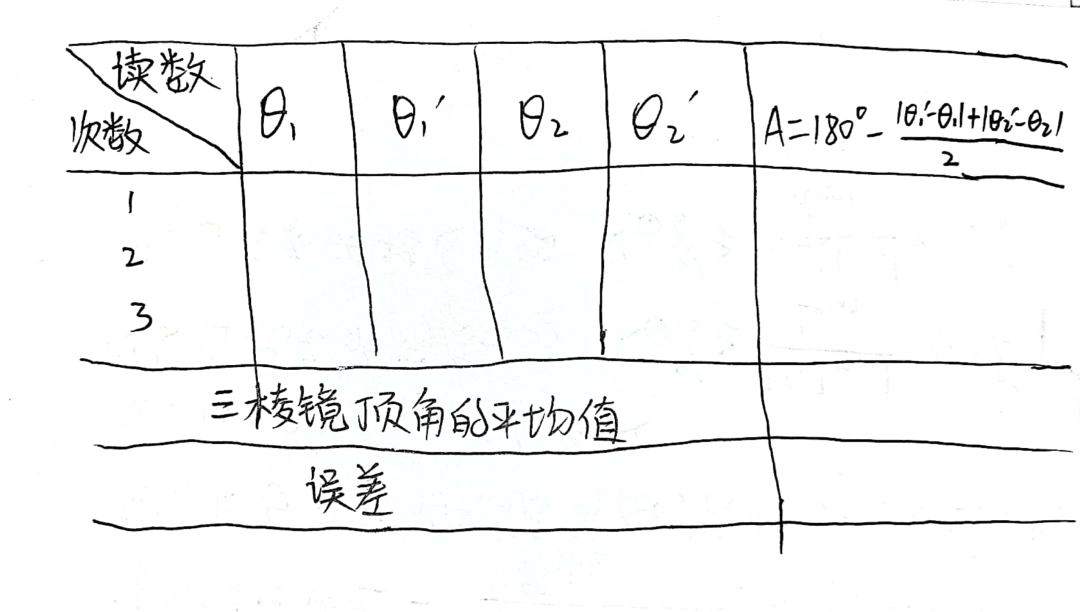 读数
次数
θ₁ θ₁′ θ₂ θ₂′ A=180°-(|θ₁′-θ₁|+|θ₂′-θ₂|)/2
1
2
3
三棱镜顶角的平均值
误差